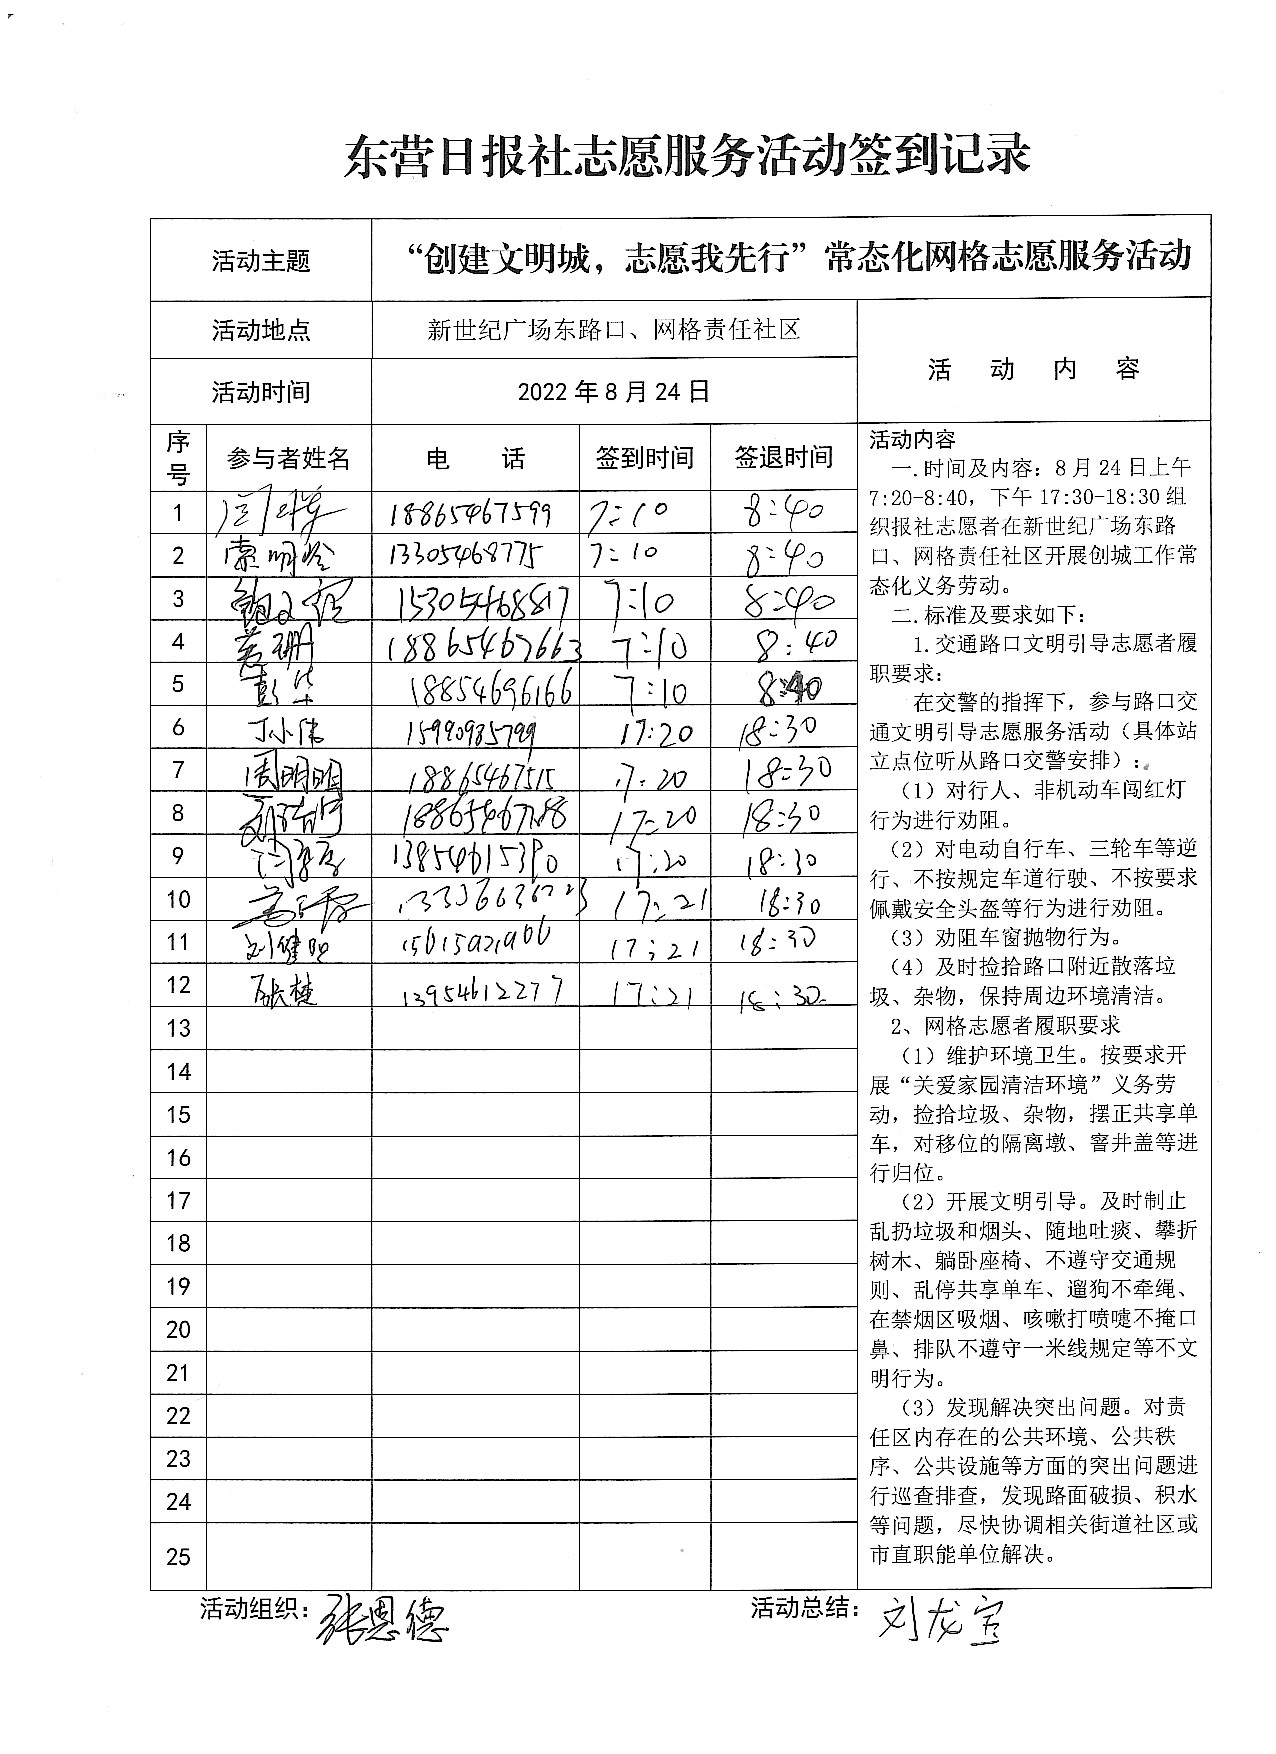 东营日报社志愿服务活动签到记录
活动主题
“创建文明城，志愿我先行”常态化网格志愿服务活动
活动地点
新世纪广场东路口、网格责任社区
活动时间
2022年8月24日
活 动 内 容
序号 参与者姓名 电 话 签到时间 签退时间
1 18865467599 7:10 8:40
2 13305468775 7:10 8:40
3 15305468817 7:10 8:40
4 18865467663 7:10 8:40
5 18854696166 7:10 8:40
6 丁小伟 15990985799 17:20 18:30
7 周明明 18865467515 17:20 18:30
8 17:20 18:30
9 17:20 18:30
10 17:21 18:30
11 刘健 17:21 18:30
12 张楚 13954612277 17:21 18:30
13
14
15
16
17
18
19
20
21
22
23
24
25
活动内容
一.时间及内容：8月24日上午
7:20-8:40，下午17:30-18:30组
织报社志愿者在新世纪广场东路
口、网格责任社区开展创城工作常
态化义务劳动。
二.标准及要求如下：
1.交通路口文明引导志愿者履
职要求：
在交警的指挥下，参与路口交
通文明引导志愿服务活动（具体站
立点位听从路口交警安排）：
（1）对行人、非机动车闯红灯
行为进行劝阻。
（2）对电动自行车、三轮车等逆
行、不按规定车道行驶、不按要求
佩戴安全头盔等行为进行劝阻。
（3）劝阻车窗抛物行为。
（4）及时捡拾路口附近散落垃
圾、杂物，保持周边环境清洁。
2、网格志愿者履职要求
（1）维护环境卫生。按要求开
展“关爱家园清洁环境”义务劳
动，捡拾垃圾、杂物，摆正共享单
车，对移位的隔离墩、窨井盖等进
行归位。
（2）开展文明引导。及时制止
乱扔垃圾和烟头、随地吐痰、攀折
树木、躺卧座椅、不遵守交通规
则、乱停共享单车、遛狗不牵绳、
在禁烟区吸烟、咳嗽打喷嚏不掩口
鼻、排队不遵守一米线规定等不文
明行为。
（3）发现解决突出问题。对责
任区内存在的公共环境、公共秩
序、公共设施等方面的突出问题进
行巡查排查，发现路面破损、积水
等问题，尽快协调相关街道社区或
市直职能单位解决。
活动组织：张恩德 活动总结：刘龙宝